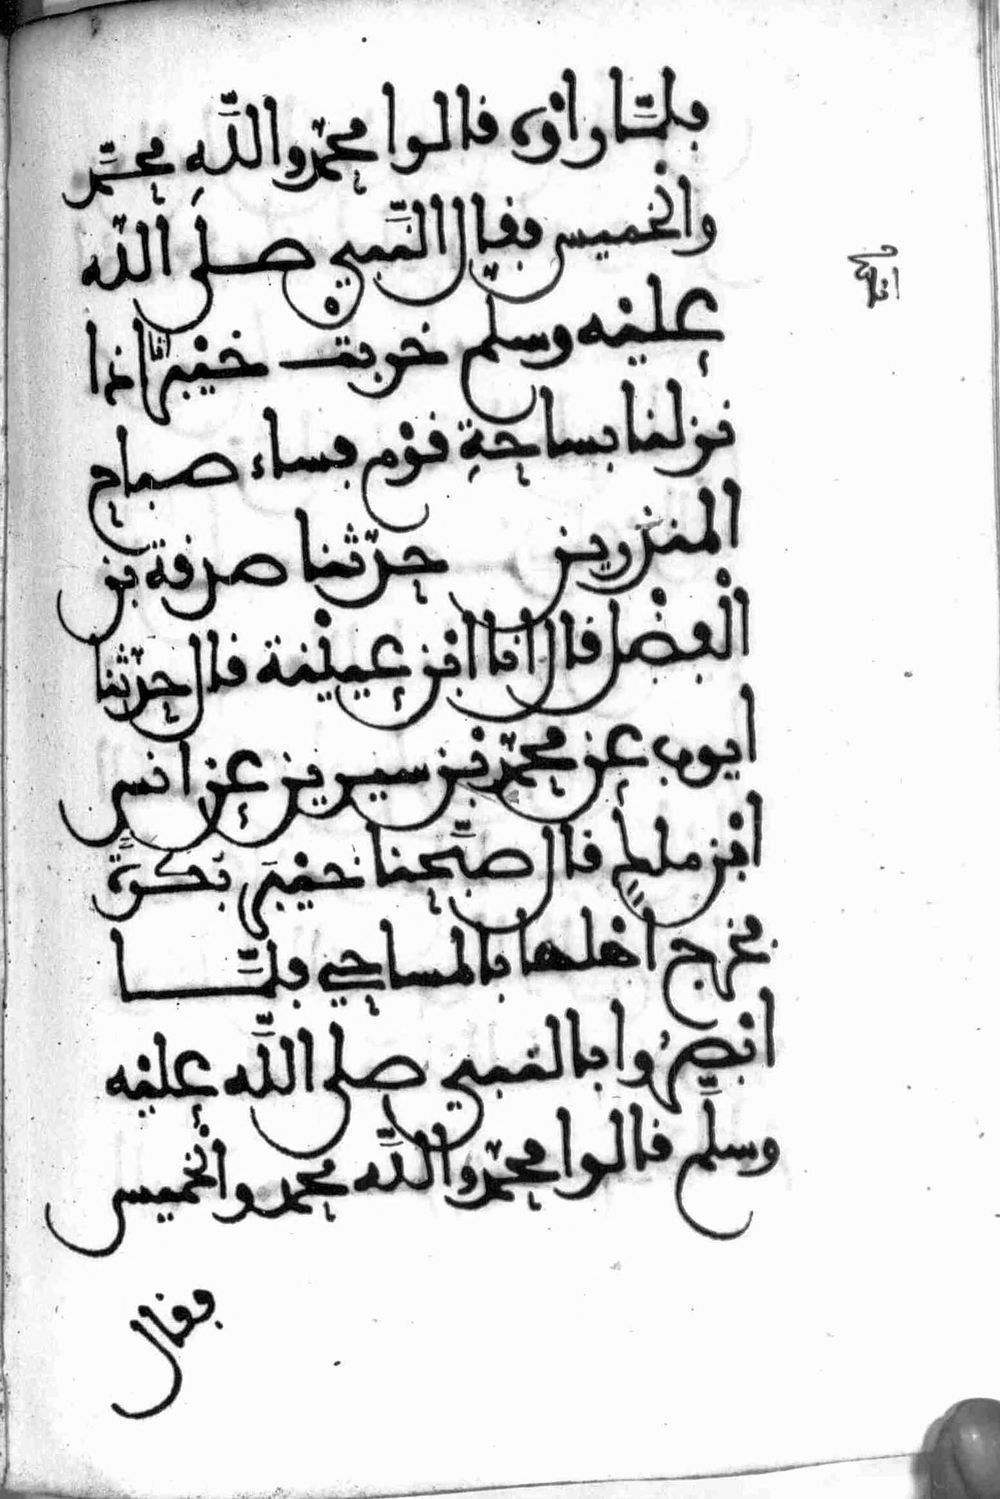 فلمّا راوْه قالوا محمّد والله محمّد
والخميس فقال النّبي صلى الله
عليْه وسلم خربت خيْبر انّا اذا
نزلنا بساحة قوْم فساء صباح
المنذرين حدّثنا صدقة بن
الْفضْل قال انا ابْن عيينة قال حدّثنا
ايوب عن محمّد بْن سيرين عن انس
ابْن ملك قال صبّحنا خيْبر بكرةً
فخرج اهْلها بالمساحي فلمّا
ابْصرُوا بالنبي صلى الله عليْه
وسلّم قالوا محمّد والله محمد والخميس
فقال